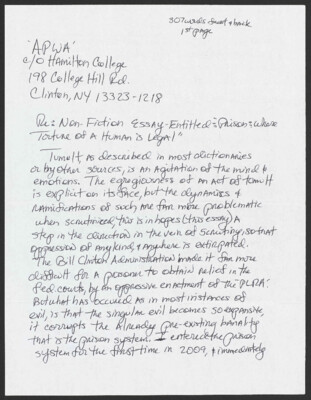 307 words front & back
1st page
'APWA'
c/o Hamilton College
198 College Hill Rd.
Clinton, NY 13323-1218
Re: Non-Fiction Essay-Entitled: "Prison: Where
Torture of A Human is Legal"
Tumult, as described in most dictionaries
or by other sources, is an agitation of the mind &
emotions. The egregiousness of an act of tumult
is explicit on its face, but the dynamics &
ramifications of such are far more problematic
when scrutinized, this is in hopes (this essay) A
step in the direction in the vein of scrutiny, so that
oppression of any kind, & anywhere is extirpated.
The Bill Clinton Administration made it far more
difficult for a prisoner to obtain relief in the
Fed. courts, by an oppressive enactment of the PLRA.
But what has occurred as in most instances of
evil, is that the singular evil becomes so expansive,
it corrupts the already pre-existing banality
that is the prison system. I entered the prison
system for the first time in 2009, & immediately